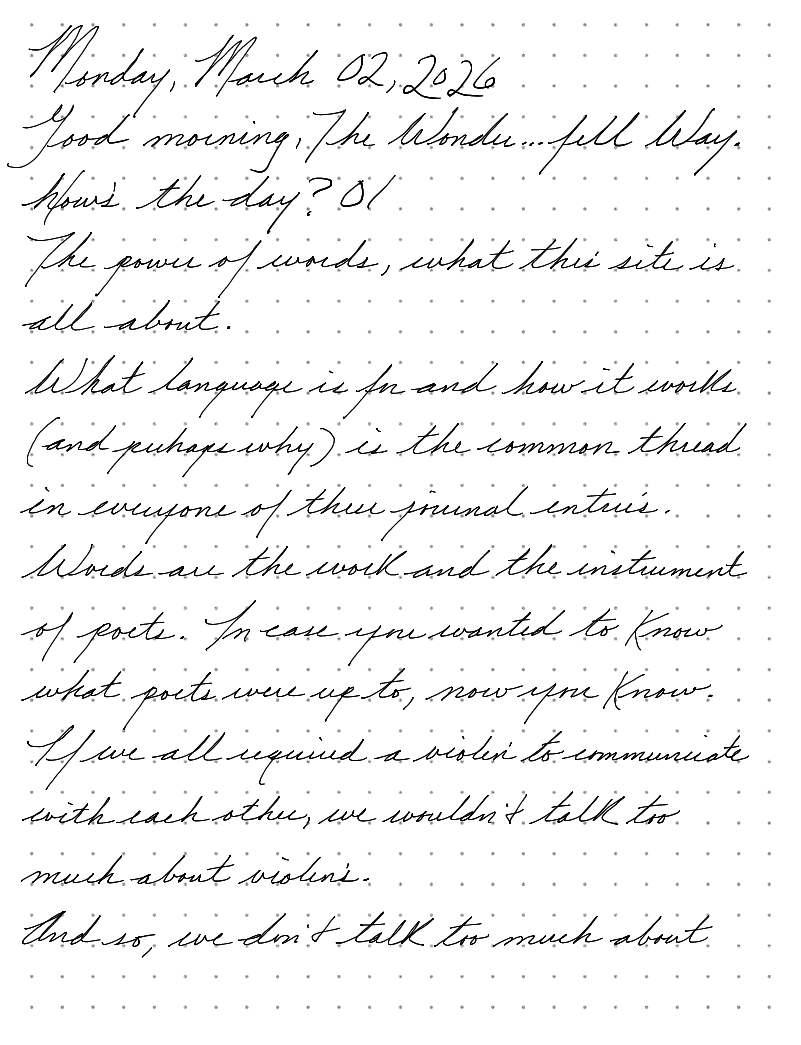 Monday, March 02, 2026
Good morning, The Wonder...full Way.
How's the day? 01
The power of words, what this site is
all about.
What language is for and how it works
(and perhaps why) is the common thread
in everyone of these journal entries.
Words are the work and the instrument
of poets. In case you wanted to know
what poets were up to, now you know.
If we all required a violin to communicate
with each other, we wouldn't talk too
much about violins.
And so, we don't talk too much about